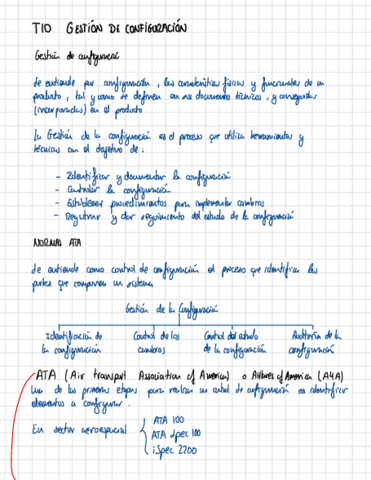 T10 GESTIÓN DE CONFIGURACIÓN
Gestión de configuración
Se entiende por configuración, las características físicas y funcionales de un
producto, tal y como se definen en sus documentos técnicos, y conseguidas
(incorporadas) en el producto
La Gestión de la configuración es el proceso que utiliza herramientas y
técnicas con el objetivo de:
- Identificar y documentar la configuración
- Controlar la configuración
- Establecer procedimientos para implementar cambios
- Registrar y dar seguimiento del estado de la configuración
NORMAS ATA
Se entiende como control de configuración el proceso que identifica las
partes que componen un sistema.
Gestión de la Configuración
Identificación de Control de los Control del estado Auditoría de la
la configuración cambios de la configuración configuración
ATA (Air transport Association of America) o Airlines of America (A4A)
Una de las primeras etapas para realizar un control de configuración es identificar
elementos a configurar.
En sector aeroespacial { ATA 100
ATA Spec 100
iSpec 2200